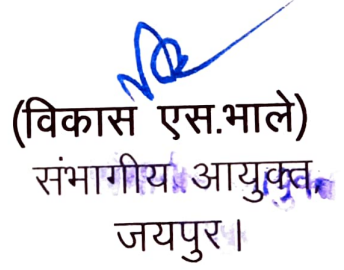 (विकास एस.भाले)
संभागीय आयुक्त,
जयपुर।